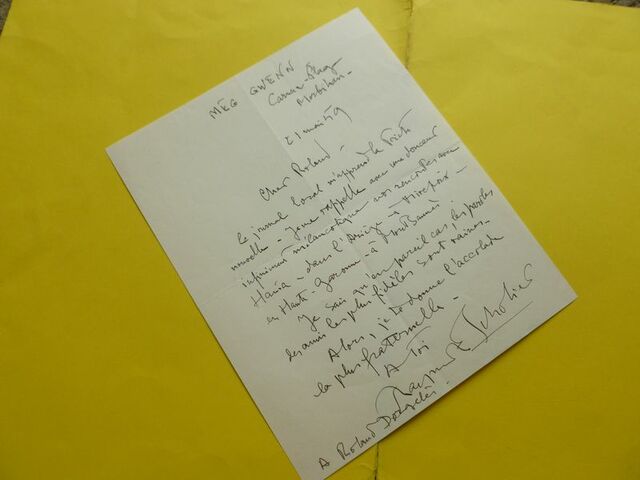 MEG GWENN
Carnac-Plage
Morbihan-
21 mai 59
Cher Roland-
le journal local m'apprend la triste
nouvelle- Je me rappelle avec une douceur
infiniment mélancolique nos rencontres avec
Hania- dans l'Ariège- à Mirepoix-
en Haute-Garonne- à Montbrun-
Je sais qu'en pareil cas, les paroles
des amis les plus fidèles sont vaines-
Alors, je te donne l'accolade
la plus fraternelle-
A Toi
Raymond Escholier
A Roland Dorgelès-